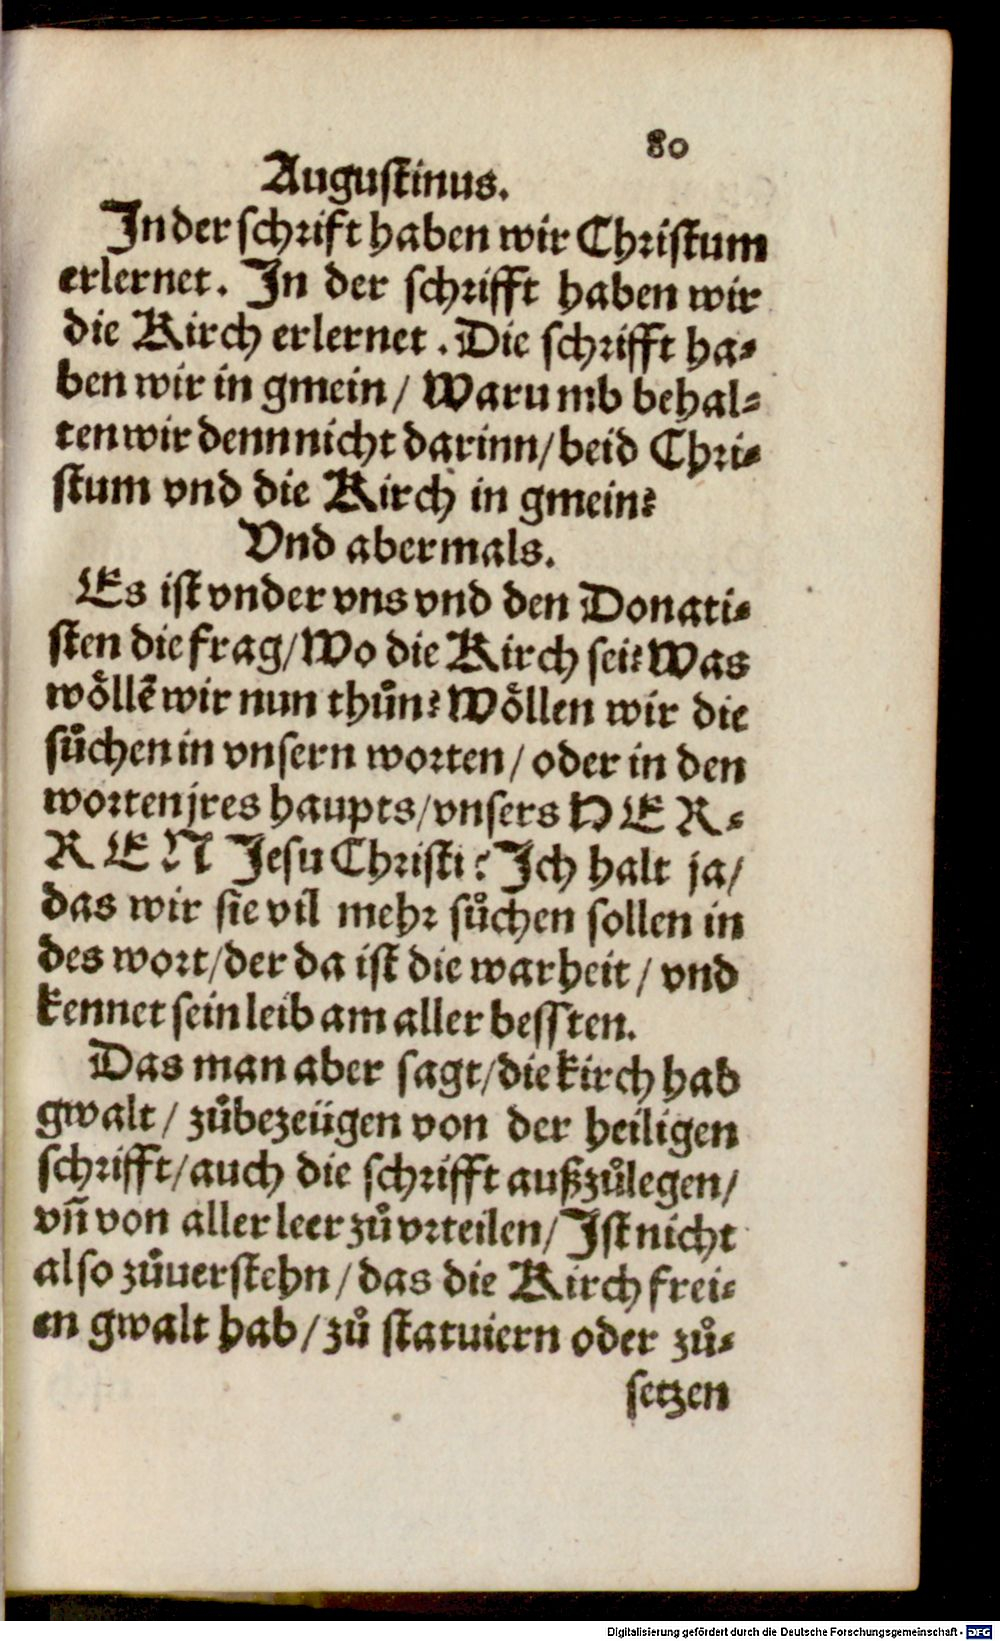 80
Augustinus.
In der schrift haben wir Christum
erlernet. In der schrifft haben wir
die Kirch erlernet. Die schrifft ha-
ben wir in gmein / Warumb behal-
ten wir denn nicht darinn / beid Chri-
stum vnd die Kirch in gmein?
Vnd abermals.
Es ist vnder vns vnd den Donati-
sten die frag / Wo die Kirch sei? Was
wöllē wir nun thůn? Wöllen wir die
sůchen in vnsern worten / oder in den
worten jres haupts / vnsers HER-
REN Jesu Christi? Ich halt ja /
das wir sie vil mehr sůchen sollen in
des wort / der da ist die warheit / vnd
kennet sein leib am aller bessten.
Das man aber sagt / die kirch hab
gwalt / zůbezeügen von der heiligen
schrifft / auch die schrifft außzůlegen /
vñ von aller leer zů vrteilen / Ist nicht
also zůuerstehn / das die Kirch frei-
en gwalt hab / zů statuiern oder zů-
setzen
Digitalisierung gefördert durch die Deutsche Forschungsgemeinschaft - DFG